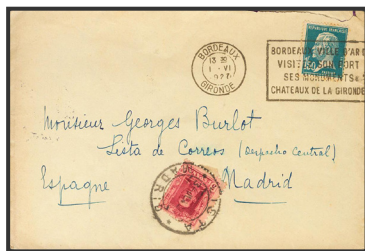 BORDEAUX
13 30
1 - VI
GIRONDE
BORDEAUX VILLE D'ART
VISITEZ SON PORT
SES MONUMENTS
CHATEAUX DE LA GIRONDE
Monsieur Georges Burlot
Lista de Correos (Despacho Central)
Espagne Madrid
LISTA
MADRID